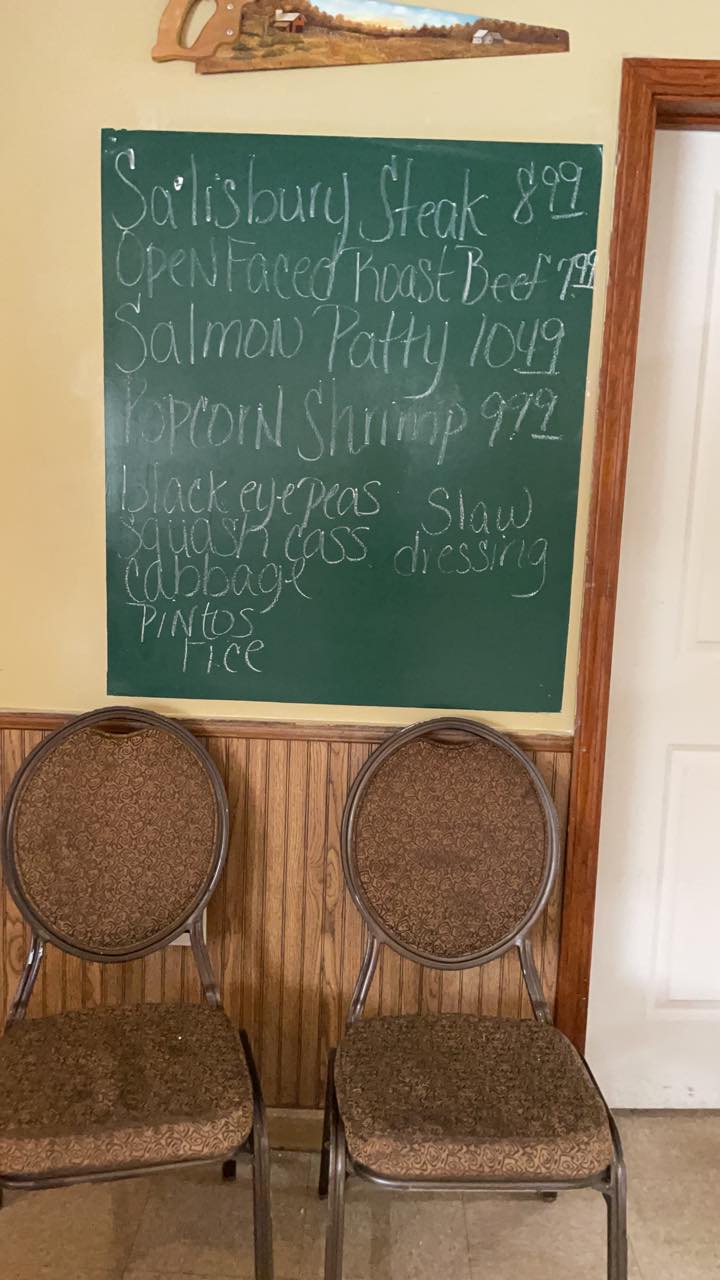 Salisbury Steak 8 99
Open Faced Roast Beef 7.99
Salmon Patty 10 49
Popcorn Shrimp 9 99
black eye peas
squash cass
cabbage
Pintos
rice
Slaw
dressing